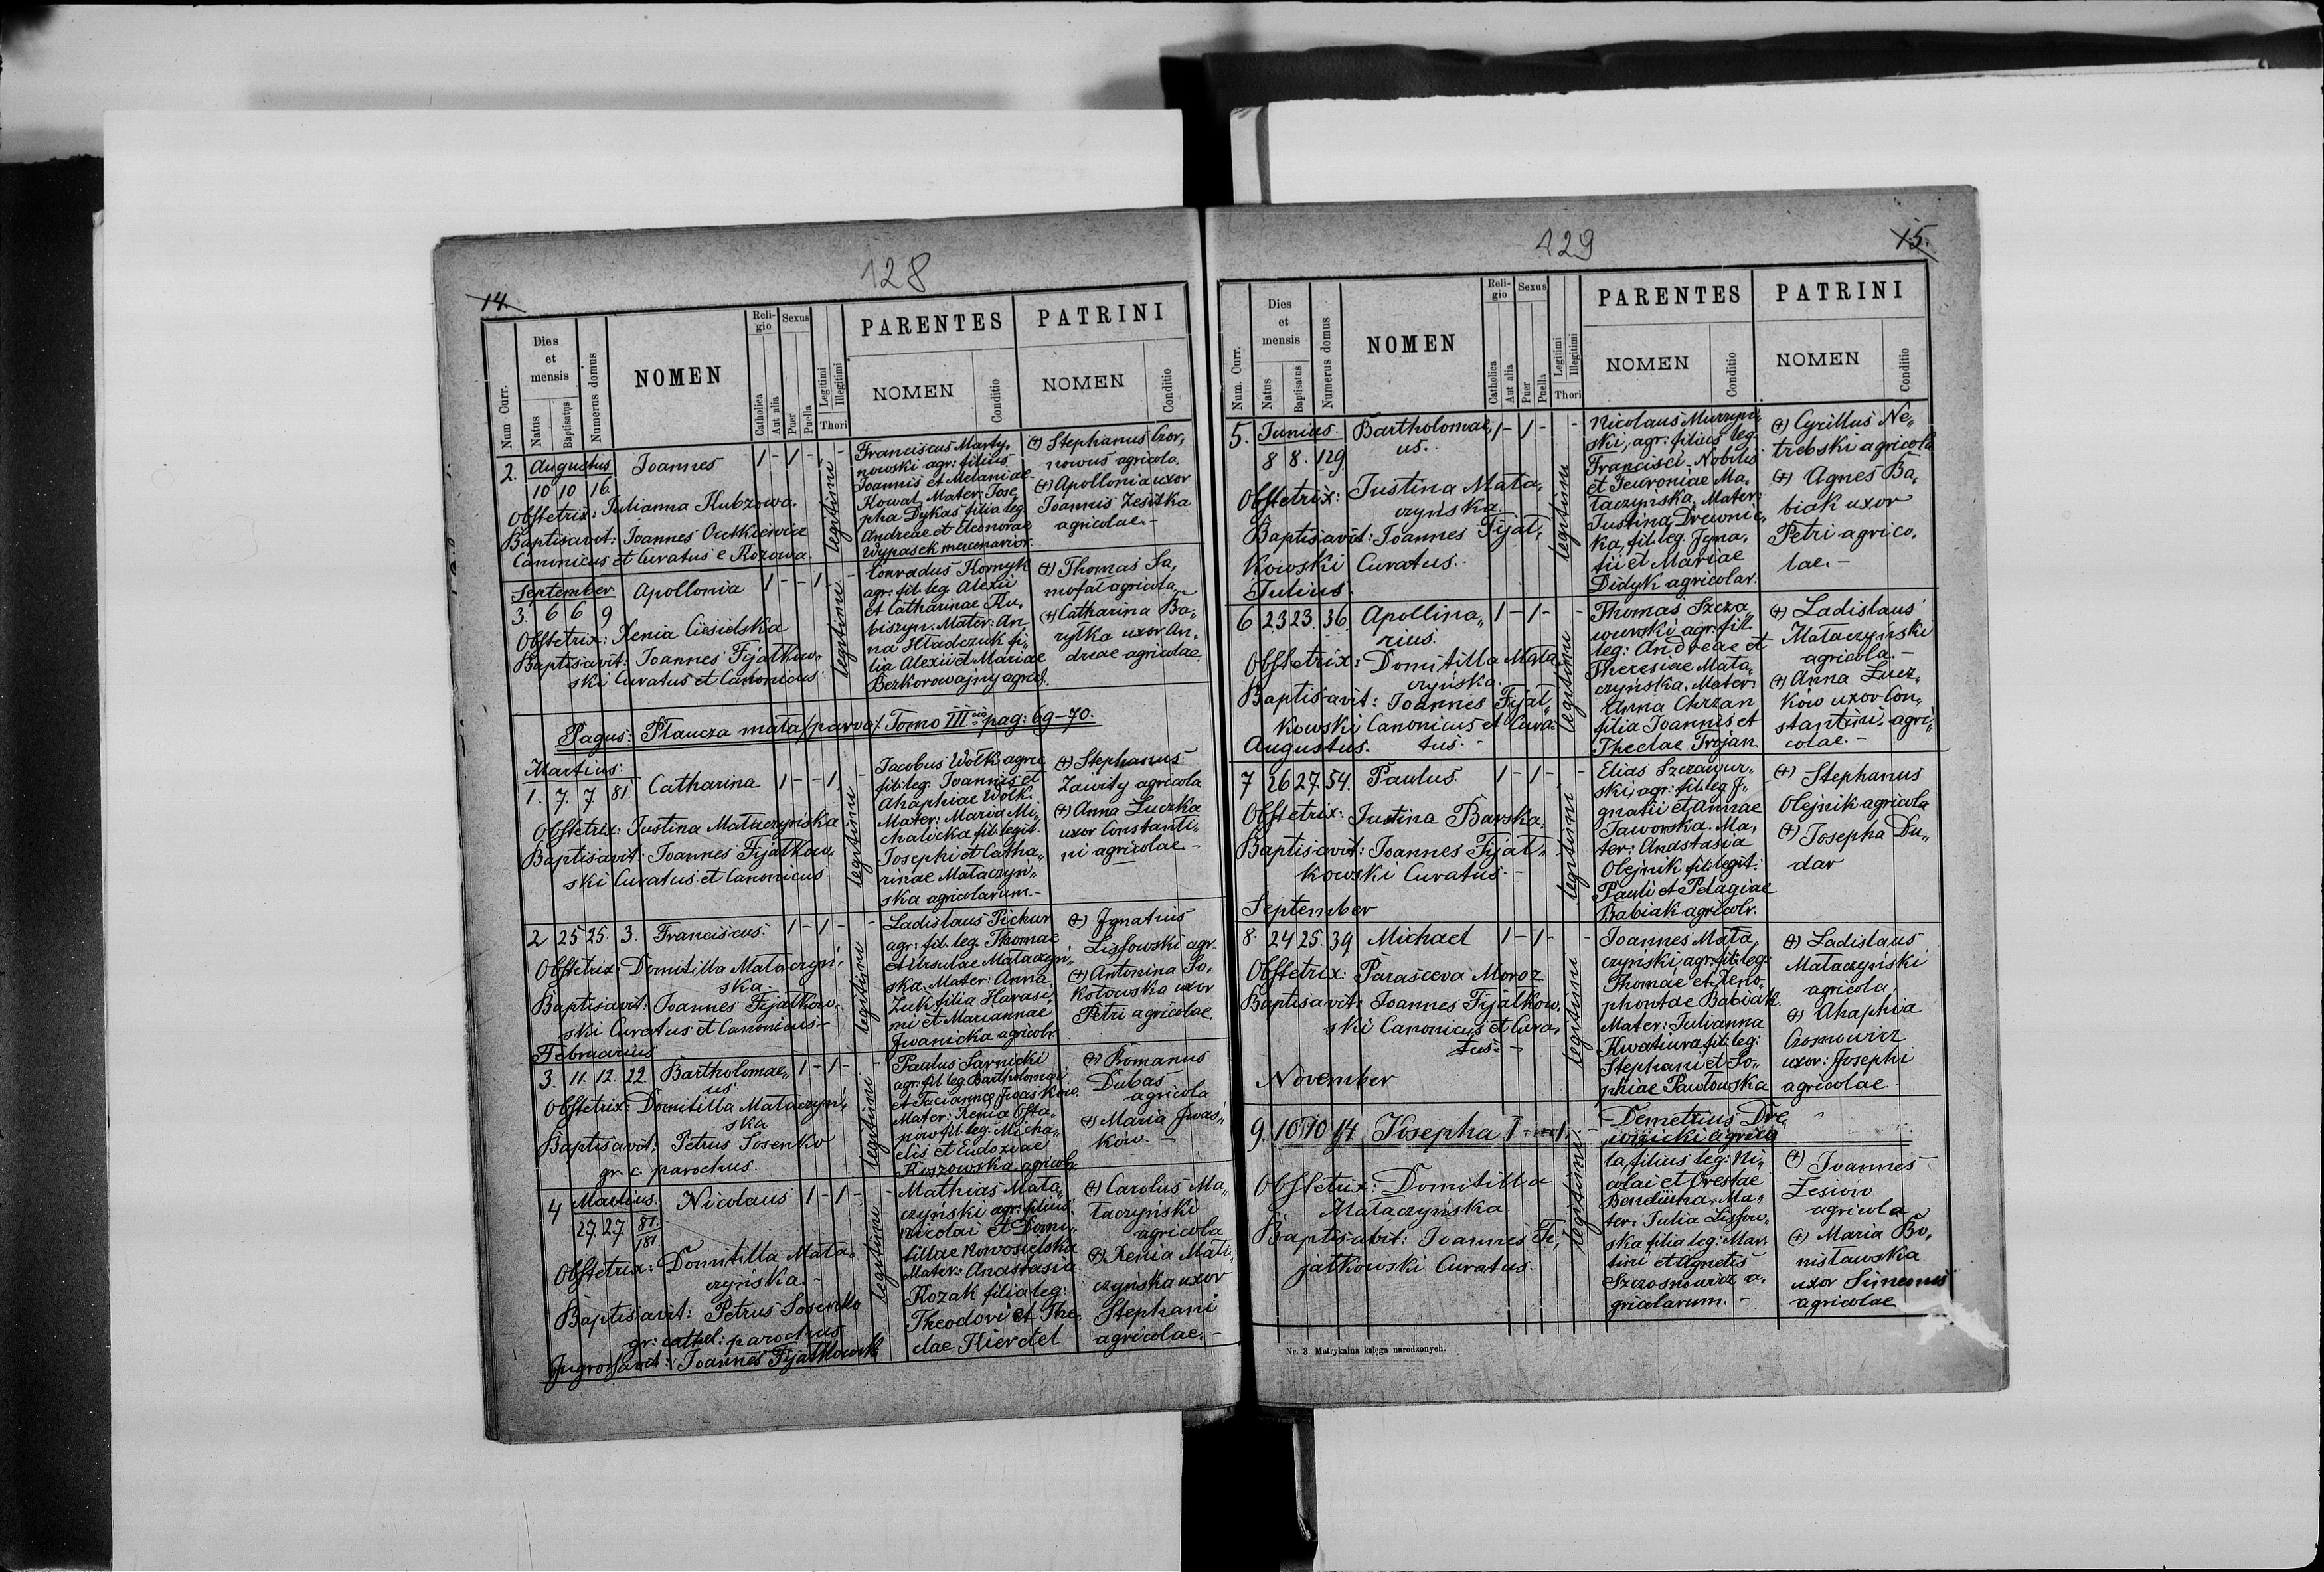 128
14.
Num Curr.
Dies
et
mensis
Natus
Baptisatus
Numerus domus
NOMEN
Reli-
gio
Catholica
Aut alia
Sexus
Puer
Puella
Legitimi
Illegitimi
Thori
PARENTES
NOMEN
Conditio
PATRINI
NOMEN
Conditio
2. Augustus Joannes 1 - 1 - -
10 10 16.
Obstetrix: Julianna Kubzowa.
Baptisavit: Joannes
Canonicus et Curatus e Kozowa.
legitimi
Franciscus Marty„
nowski agr: filius
Joannis et Melaniae
Kowal. Mater: Jose„
pha Dykas filia leg.
Andreae et Eleonorae
Wypasek mercenarior.
(+) Stephanus Czor„
nowus agricola.
(+) Apollonia uxor
Joannis Zesitka
agricolae.-
September Apollonia 1 - - 1 -
3. 6 6 9
Obstetrix: Xenia Ciesielska
Baptisavit: Joannes Fijatkow„
ski Curatus et Canonicus.
legitimi
Conradus Kornyk
agr. fil. leg. Alexii
et Catharinae Ku„
biszyn. Mater: An„
na Hladczuk fi„
lia Alexii et Mariae
Bezkorowajny agricol.
(+) Thomas Sa„
mofał agricola
(+) Catharina Ba„
ryłka uxor An„
dreae agricolae.
Pagus: Płaucza mała /parva/. Tomo III pag: 69-70.
Martius.
1. 7. 7. 81. Catharina 1 - - 1 -
Obstetrix: Justina Mataczyńska
Baptisavit: Joannes Fijatkow„
ski Curatus et Canonicus
legitimi
Jacobus Wołk agric.
fil: leg: Joannis et
Ahaphiae Wołk.
Mater: Maria Mi„
chalicka fil: legit.
Josephi et Catha„
rinae Mataczyń„
ska agricolarum.-
(+) Stephanus
Zawity agricola
(+) Anna Łuczka
uxor Constanti„
ni agricolae.-
2 25 25. 3. Franciscus. 1 - 1 - -
Obstetrix: Domitilla Mataczyń„
ska.-
Baptisavit: Joannes Fijatkow„
ski Curatus et Canonicus.-
legitimi
Ladislaus Pickur
agr: fil. leg. Thomae
et Ursulae Mataczyń„
ska. Mater: Anna
Żuk filia Harasi„
mi et Mariannae
Iwanicka agricolr.
(+) Ignatius
Lissowski agr.
(+) Antonina So„
kołowska uxor
Petri agricolae
Februarius
3. 11. 12. 22. Bartholomae„ 1 - 1 - -
us.
Obstetrix: Domitilla Mataczyń„
ska
Baptisavit: Petrus Sosenko
gr. c. parochus.
legitimi
Paulus Sarnicki
agr: fil leg. Bartholomaei
et Taciannae Iwaśkow.
Mater: Xenia Osta„
pow fil. leg. Micha„
elis et Eudoxiae
Koszowska agricolr.
(+) Romanus
Dubas
agricola
(+) Maria Iwaś„
ków.-
4 Martius. Nicolaus 1 - 1 - -
27. 27 81.
181
Obstetrix: Domitilla Mata„
czyńska.-
Baptisavit: Petrus Sosenko
gr: cathol: parochus
Ingrossavit: Joannes Fijatkowski
legitimi
Mathias Mata„
czyński agr: filius
Nicolai et Domi„
tillae Nowosielska
Mater: Anastasia
Kozak filia leg:
Theodori et The„
clae Kierdel
(+) Carolus Ma„
taczyński
agricola
(+) Xenia Mata„
czyńska uxor
Stephani
agricolae.-
129
15.
Num. Curr.
Dies
et
mensis
Natus
Baptisatus
Numerus domus
NOMEN
Reli-
gio
Catholica
Aut alia
Sexus
Puer
Puella
Legitimi
Illegitimi
Thori
PARENTES
NOMEN
Conditio
PATRINI
NOMEN
Conditio
5. Junius Bartholomae„ 1 - 1 - -
us.
8 8. 129.
Obstetrix: Justina Mata„
czyńska.
Baptisavit: Joannes Fijat„
kowski Curatus.
legitimi
Nicolaus Murzyń„
ski, agr: filius leg.
Francisci - Nobilis
et Fevroniae Ma„
taczyńska. Mater:
Justina Drewnic„
ka, fil. leg. Igna„
tii et Mariae
Didyk agricolar.
(+) Cyrillus Ne„
trebski agricola
(+) Agnes Ba„
biak uxor
Petri agrico„
lae.-
Julius.
6 23 23. 36. Apollina„ 1 - 1 - -
rius.
Obstetrix: Domitilla Mata„
czyńska.
Baptisavit: Joannes Fijat„
kowski Canonicus et Cura„
tus.-
legitimi
Thomas Szcza„
wurski agr: fil.
leg: Andreae et
Theresiae Mata„
czyńska. Mater:
Anna Chrzan
filia Joannis et
Theclae Trojan
(+) Ladislaus
Mataczyński
agricola.-
(+) Anna Łucz„
ków uxor Con„
stantini agri„
colae.-
Augustus.
7 26 27. 54. Paulus 1 - 1 - -
Obstetrix: Justina Barska.
Baptisavit: Joannes Fijat„
kowski Curatus.-
legitimi
Elias Szczawur„
ski agr: fil: leg I„
gnatii et Annae
Jaworska. Ma„
ter: Anastasia
Olejnik fil: legit:
Pauli et Pelagiae
Babiak agricolr.
(+) Stephanus
Olejnik agricola
(+) Josepha Du„
dar
September
8. 24 25. 39 Michael 1 - 1 - -
Obstetrix: Parasceva Moroz
Baptisavit: Joannes Fijatkow„
ski Canonicus et Cura„
tus.-
legitimi
Joannes Mata„
czyński agr: fil: leg:
Thomae et Xeno„
phontae Babiak
Mater: Julianna
Kwatiura fil: leg:
Stephani et So„
phiae Pawłowska
(+) Ladislaus
Mataczyński
agricola.
(+) Ahaphia
Czornowicz
uxor: Josephi
agricolae.-
November
9. 10 10 14. Josepha 1 - - 1. -
Obstetrix: Domitilla
Mataczyńska
Baptisavit: Joannes Fi„
jatkowski Curatus.
legitimi.
Demetrius Dre„
wnicki agrico
la, filius leg: Ni„
colai et Orestae
Bendiuha. Ma„
ter: Julia Lissow„
ska filia leg: Mar„
tini et Agnetis
Szczosnowicz a„
gricolarum.-
(+) Joannes
Zesiow
agricola
(+) Maria Bo„
nisławska
uxor Simeonis
agricolae
Nr. 3. Metrykalna księga narodzonych.